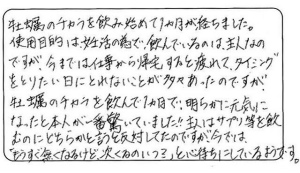 牡蠣のチカラを飲み始めて1カ月が経ちました。
使用目的は、妊活の為で、飲んでいるのは、主人なの
ですが、今までは仕事から帰宅すると疲れて、タイミング
をとりたい日にとれないことが多々あったのですが、
牡蠣のチカラを飲んで1カ月で、明らかに元気に
なったと本人が一番驚いていました!!主人はサプリ等を飲
むのにどちらかと言うと反対してたのですが今では、
「もうすぐ無くなるけど、次くるのいつ?」と心待ちにしているようです。